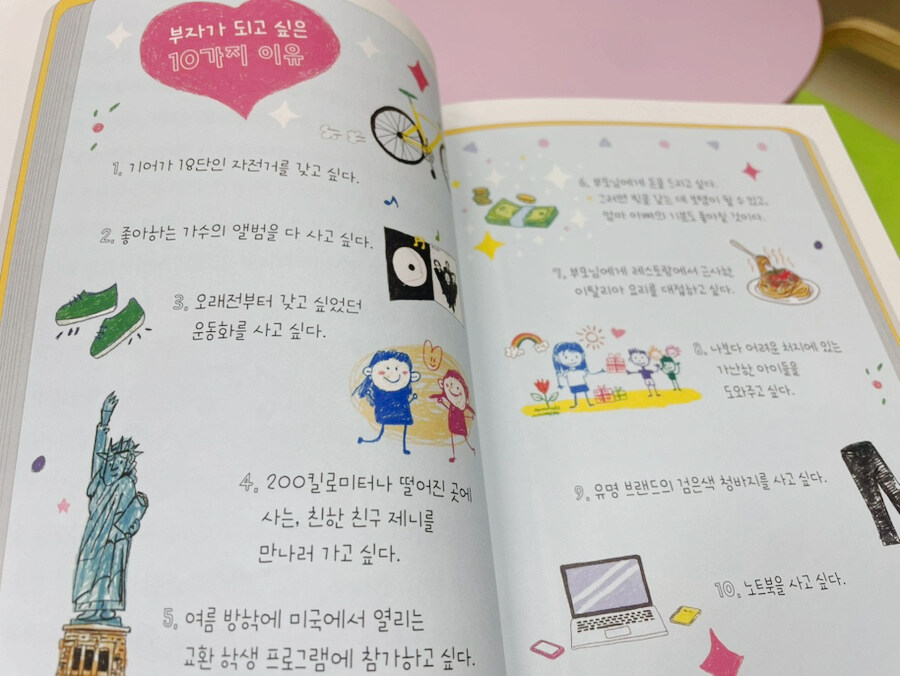 부자가 되고 싶은
10가지 이유
1. 기어가 18단인 자전거를 갖고 싶다.
2. 좋아하는 가수의 앨범을 다 사고 싶다.
3. 오래전부터 갖고 싶었던
운동화를 사고 싶다.
4. 200킬로미터나 떨어진 곳에
사는, 친한 친구 제니를
만나러 가고 싶다.
5. 여름 방학에 미국에서 열리는
교환 학생 프로그램에 참가하고 싶다.
6. 부모님에게 돈을 드리고 싶다.
그러면 빚을 갚는 데 보탬이 될 수 있고,
엄마 아빠의 기분도 좋아질 것이다.
7. 부모님에게 레스토랑에서 근사한
이탈리아 요리를 대접하고 싶다.
8. 나보다 어려운 처지에 있는
가난한 아이들을
도와주고 싶다.
9. 유명 브랜드의 검은색 청바지를 사고 싶다.
10. 노트북을 사고 싶다.